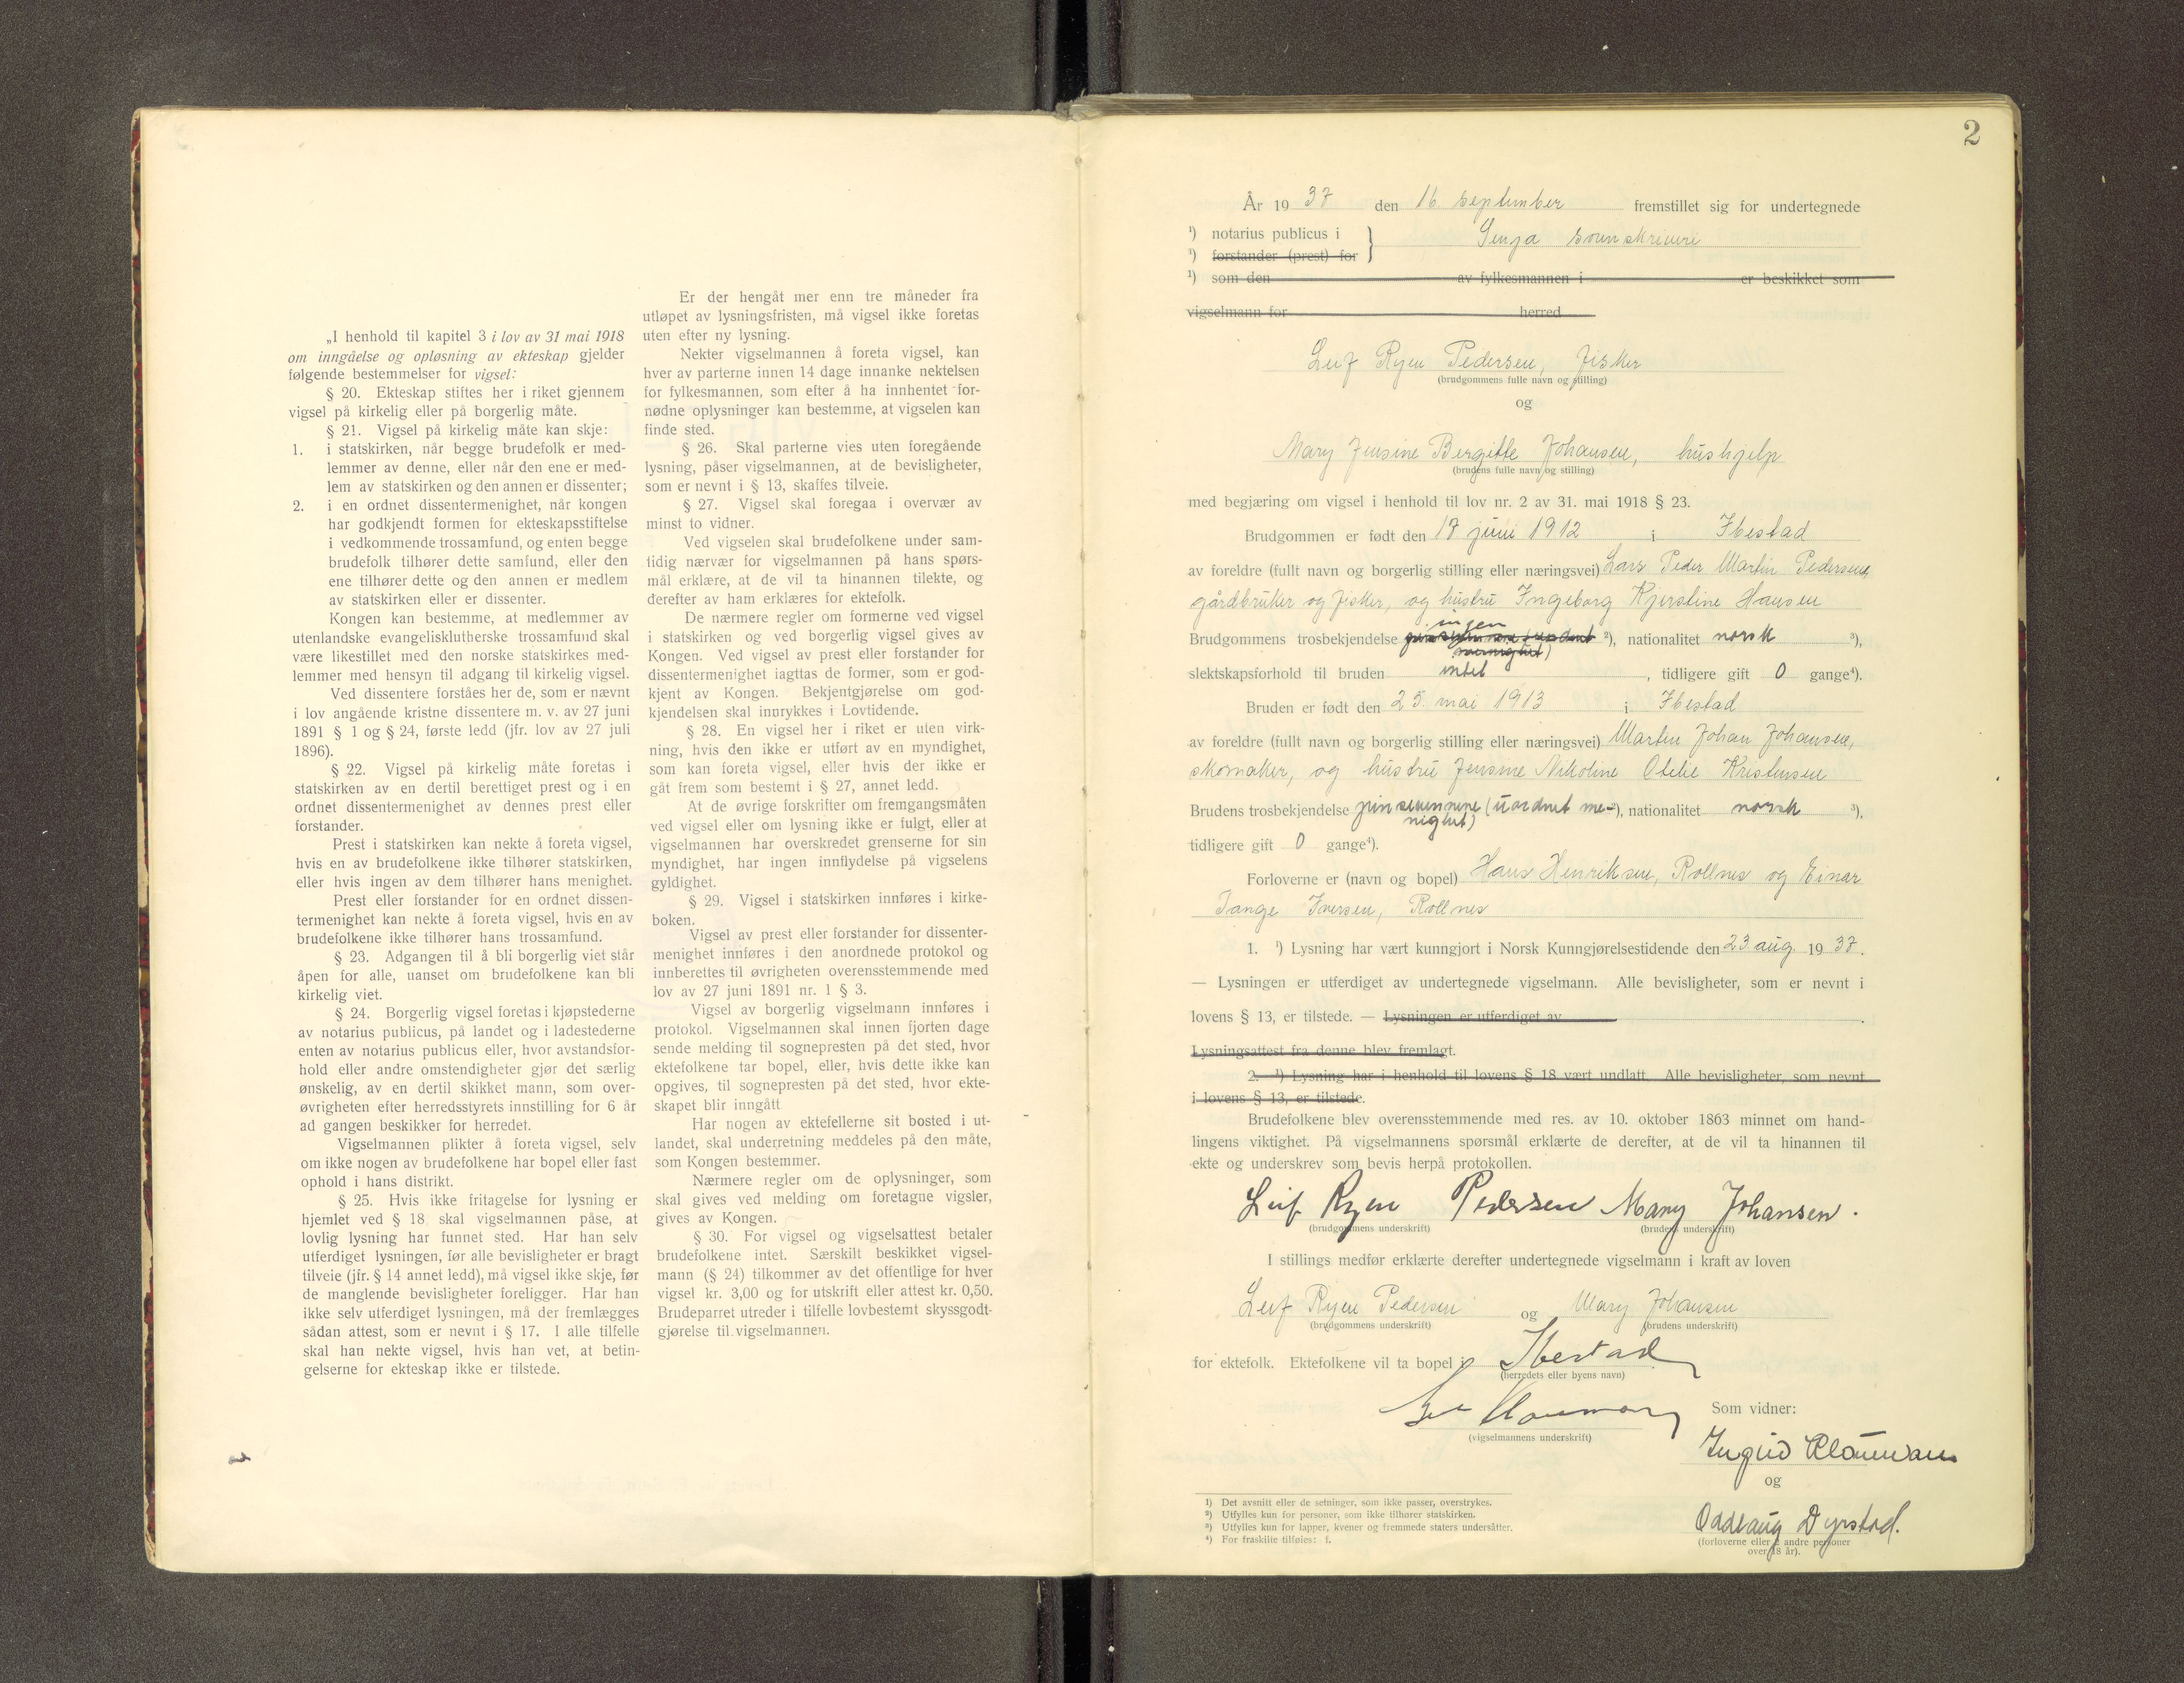 „I henhold til kapitel 3 i lov av 31 mai 1918
om inngåelse og opløsning av ekteskap gjelder
følgende bestemmelser for vigsel:
§ 20. Ekteskap stiftes her i riket gjennem
vigsel på kirkelig eller på borgerlig måte.
§ 21. Vigsel på kirkelig måte kan skje:
1. i statskirken, når begge brudefolk er med-
lemmer av denne, eller når den ene er med-
lem av statskirken og den annen er dissenter;
2. i en ordnet dissentermenighet, når kongen
har godkjendt formen for ekteskapsstiftelse
i vedkommende trossamfund, og enten begge
brudefolk tilhører dette samfund, eller den
ene tilhører dette og den annen er medlem
av statskirken eller er dissenter.
Kongen kan bestemme, at medlemmer av
utenlandske evangelisklutherske trossamfund skal
være likestillet med den norske statskirkes med-
lemmer med hensyn til adgang til kirkelig vigsel.
Ved dissentere forståes her de, som er nævnt
i lov angående kristne dissentere m. v. av 27 juni
1891 § 1 og § 24, første ledd (jfr. lov av 27 juli
1896).
§ 22. Vigsel på kirkelig måte foretas i
statskirken av en dertil berettiget prest og i en
ordnet dissentermenighet av dennes prest eller
forstander.
Prest i statskirken kan nekte å foreta vigsel,
hvis en av brudefolkene ikke tilhører statskirken,
eller hvis ingen av dem tilhører hans menighet.
Prest eller forstander for en ordnet dissen-
termenighet kan nekte å foreta vigsel, hvis en av
brudefolkene ikke tilhører hans trossamfund.
§ 23. Adgangen til å bli borgerlig viet står
åpen for alle, uanset om brudefolkene kan bli
kirkelig viet.
§ 24. Borgerlig vigsel foretas i kjøpstederne
av notarius publicus, på landet og i ladestederne
enten av notarius publicus eller, hvor avstandsfor-
hold eller andre omstendigheter gjør det særlig
ønskelig, av en dertil skikket mann, som over-
øvrigheten efter herredsstyrets innstilling for 6 år
ad gangen beskikker for herredet.
Vigselmannen plikter å foreta vigsel, selv
om ikke nogen av brudefolkene har bopel eller fast
ophold i hans distrikt.
§ 25. Hvis ikke fritagelse for lysning er
hjemlet ved § 18 skal vigselmannen påse, at
lovlig lysning har funnet sted. Har han selv
utferdiget lysningen, før alle bevisligheter er bragt
tilveie (jfr. § 14 annet ledd), må vigsel ikke skje, før
de manglende bevisligheter foreligger. Har han
ikke selv utferdiget lysningen, må der fremlægges
sådan attest, som er nevnt i § 17. I alle tilfelle
skal han nekte vigsel, hvis han vet, at betin-
gelserne for ekteskap ikke er tilstede.
Er der hengåt mer enn tre måneder fra
utløpet av lysningsfristen, må vigsel ikke foretas
uten efter ny lysning.
Nekter vigselmannen å foreta vigsel, kan
hver av parterne innen 14 dage innanke nektelsen
for fylkesmannen, som efter å ha innhentet for-
nødne oplysninger kan bestemme, at vigselen kan
finde sted.
§ 26. Skal parterne vies uten foregående
lysning, påser vigselmannen, at de bevisligheter,
som er nevnt i § 13, skaffes tilveie.
§ 27. Vigsel skal foregaa i overvær av
minst to vidner.
Ved vigselen skal brudefolkene under sam-
tidig nærvær for vigselmannen på hans spørs-
mål erklære, at de vil ta hinannen tilekte, og
derefter av ham erklæres for ektefolk.
De nærmere regler om formerne ved vigsel
i statskirken og ved borgerlig vigsel gives av
Kongen. Ved vigsel av prest eller forstander for
dissentermenighet iagttas de former, som er god-
kjent av Kongen. Bekjentgjørelse om god-
kjendelsen skal innrykkes i Lovtidende.
§ 28. En vigsel her i riket er uten virk-
ning, hvis den ikke er utført av en myndighet,
som kan foreta vigsel, eller hvis der ikke er
gåt frem som bestemt i § 27, annet ledd.
At de øvrige forskrifter om fremgangsmåten
ved vigsel eller om lysning ikke er fulgt, eller at
vigselmannen har overskredet grenserne for sin
myndighet, har ingen innflydelse på vigselens
gyldighet.
§ 29. Vigsel i statskirken innføres i kirke-
boken.
Vigsel av prest eller forstander for dissenter-
menighet innføres i den anordnede protokol og
innberettes til øvrigheten overensstemmende med
lov av 27 juni 1891 nr. 1 § 3.
Vigsel av borgerlig vigselmann innføres i
protokol. Vigselmannen skal innen fjorten dage
sende melding til sognepresten på det sted, hvor
ektefolkene tar bopel, eller, hvis dette ikke kan
opgives, til sognepresten på det sted, hvor ekte-
skapet blir inngått
Har nogen av ektefellerne sit bosted i ut-
landet, skal underretning meddeles på den måte,
som Kongen bestemmer.
Nærmere regler om de oplysninger, som
skal gives ved melding om foretagne vigsler,
gives av Kongen.
§ 30. For vigsel og vigselsattest betaler
brudefolkene intet. Særskilt beskikket vigsel-
mann (§ 24) tilkommer av det offentlige for hver
vigsel kr. 3,00 og for utskrift eller attest kr. 0,50.
Brudeparret utreder i tilfelle lovbestemt skyssgodt-
gjørelse til vigselmannen.
2
År 1937 den 16. september fremstillet sig for undertegnede
¹) notarius publicus i
¹) forstander (prest) for } Senja sorenskriveri
¹) som den av fylkesmannen i er beskikket som
vigselmann for herred
Leif Ryen Pedersen, fisker
(brudgommens fulle navn og stilling)
og
Mary Jensine Bergitte Johansen, hushjelp
(brudens fulle navn og stilling)
med begjæring om vigsel i henhold til lov nr. 2 av 31. mai 1918 § 23.
Brudgommen er født den 17 juni 1912 i Ibestad
av foreldre (fullt navn og borgerlig stilling eller næringsvei) Lars Peder Martin Pedersen,
gårdbruker og fisker, og hustru Ingeborg Kjerstine Hansen
Brudgommens trosbekjendelse ingen ²), nationalitet norsk ³),
slektskapsforhold til bruden intet, tidligere gift 0 gange⁴).
Bruden er født den 25. mai 1913 i Ibestad
av foreldre (fullt navn og borgerlig stilling eller næringsvei) Martin Johan Johansen,
skomaker, og hustru Jensine Nikoline Otelie Kristensen
Brudens trosbekjendelse pinsevennene (uordnet me-²), nationalitet norsk ³),
nighet)
tidligere gift 0 gange⁴).
Forloverne er (navn og bopel) Hans Henriksen, Rollnes og Einar
Tange Iversen, Rollnes
1. ¹) Lysning har vært kunngjort i Norsk Kunngjørelsestidende den 23 aug. 1937.
— Lysningen er utferdiget av undertegnede vigselmann. Alle bevisligheter, som er nevnt i
lovens § 13, er tilstede. — Lysningen er utferdiget av
Lysningsattest fra denne blev fremlagt.
2. ¹) Lysning har i henhold til lovens § 18 vært undlatt. Alle bevisligheter, som nevnt
i lovens § 13, er tilstede.
Brudefolkene blev overensstemmende med res. av 10. oktober 1863 minnet om hand-
lingens viktighet. På vigselmannens spørsmål erklærte de derefter, at de vil ta hinannen til
ekte og underskrev som bevis herpå protokollen.
Leif Ryen Pedersen Mary Johansen.
(brudgommens underskrift) (brudens underskrift)
I stillings medfør erklærte derefter undertegnede vigselmann i kraft av loven
Leif Ryen Pedersen og Mary Johansen
(brudgommens underskrift) (brudens underskrift)
for ektefolk. Ektefolkene vil ta bopel i Ibestad
(herredets eller byens navn)
(vigselmannens underskrift)
Som vidner:
Ingrid Klouman
og
Oddlaug Dyrstad.
(forloverne eller 2 andre personer
over 18 år).
¹) Det avsnitt eller de setninger, som ikke passer, overstrykes.
²) Utfylles kun for personer, som ikke tilhører statskirken.
³) Utfylles kun for lapper, kvener og fremmede staters undersåtter.
⁴) For fraskilte tilføies: f.